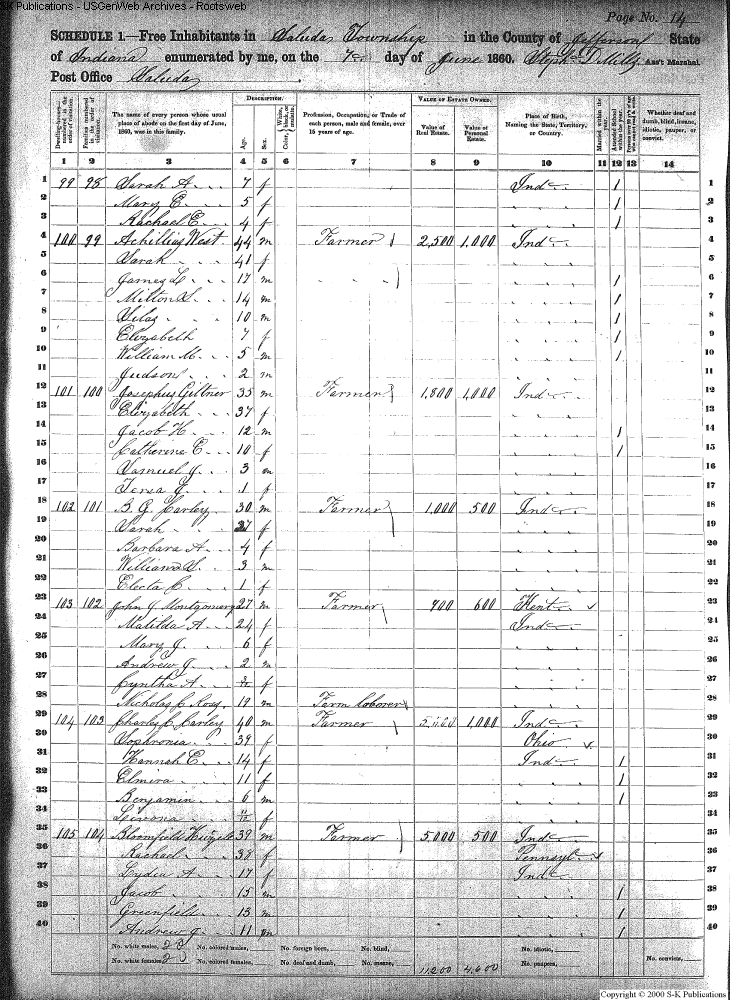 S-K Publications - USGenWeb Archives - Rootsweb
Page No. 14
SCHEDULE 1.—Free Inhabitants in Saluda Township in the County of Jefferson State
of Indiana enumerated by me, on the 7th day of June 1860. Steph Mills Ass't Marshal.
Post Office Saluda
Dwelling-houses—numbered in the order of visitation.
Families numbered in the order of visitation.
The name of every person whose usual place of abode on the first day of June, 1860, was in this family.
DESCRIPTION.
Age.
Sex.
Color, White, black, or mulatto.
Profession, Occupation, or Trade of each person, male and female, over 15 years of age.
VALUE OF ESTATE OWNED.
Value of Real Estate.
Value of Personal Estate.
Place of Birth, Naming the State, Territory, or Country.
Married within the year.
Attended School within the year.
Whether deaf and dumb, blind, insane, idiotic, pauper, or convict.
1 2 3 4 5 6 7 8 9 10 11 12 13 14
1 99 98 Sarah A. 7 f Ind 1 1
2 Mary E. 5 f 1 2
3 Rachael E. 4 f 1 3
4 100 99 Achillias West 44 m Farmer 2,500 1,000 Ind 4
5 Sarah 41 f 5
6 James L. 17 m 1 6
7 Milton S. 14 m 1 7
8 Silas 10 m 1 8
9 Elizabeth 7 f 1 9
10 William M. 5 m 1 10
11 Judson 2 m
12 101 100 Josephus Giltner 35 m Farmer 1,800 1,000 Ind 12
13 Elizabeth 37 f 13
14 Jacob H. 12 m 1 14
15 Catherine E. 10 f 1 15
16 Samuel J. 3 m 16
17 J. 1 f 17
18 102 101 B. G. Carley 30 m Farmer 1,000 500 Ind 18
19 Sarah 27 f 19
20 Barbara A. 4 f 20
21 William S. 3 m 21
22 Electa C. 1 f 22
23 103 102 John J. Montgomery 27 m Farmer 400 600 Kent 23
24 Matilda A. 24 f Ind 24
25 Mary J. 6 f 25
26 Andrew J. 2 m 26
27 Cyntha A. f 27
28 Nicholas C. Ross 19 m Farm laborer 28
29 104 103 Charles C. Carley 40 m Farmer 1,000 Ind 29
30 Sophronia 39 f Ohio 30
31 Hannah E. 14 f Ind 1 31
32 Elmira 11 f 1 32
33 Benjamin 6 m 1 33
34 f 34
35 105 104 Bloomfield 39 m Farmer 5,000 500 Ind 35
36 Rachael 38 f Pennsyl 36
37 Lydia A. 17 f Ind 37
38 Jacob 15 m 1 38
39 Greenfield 13 m 1 39
40 Andrew J. 11 m 1 40
No. white males, No. colored males, No. foreign born, No. blind, No. idiotic,
No. white females, No. colored females, No. deaf and dumb, No. insane, 11,200 4,600 No. paupers, No. convicts,
Copyright © 2000 S-K Publications